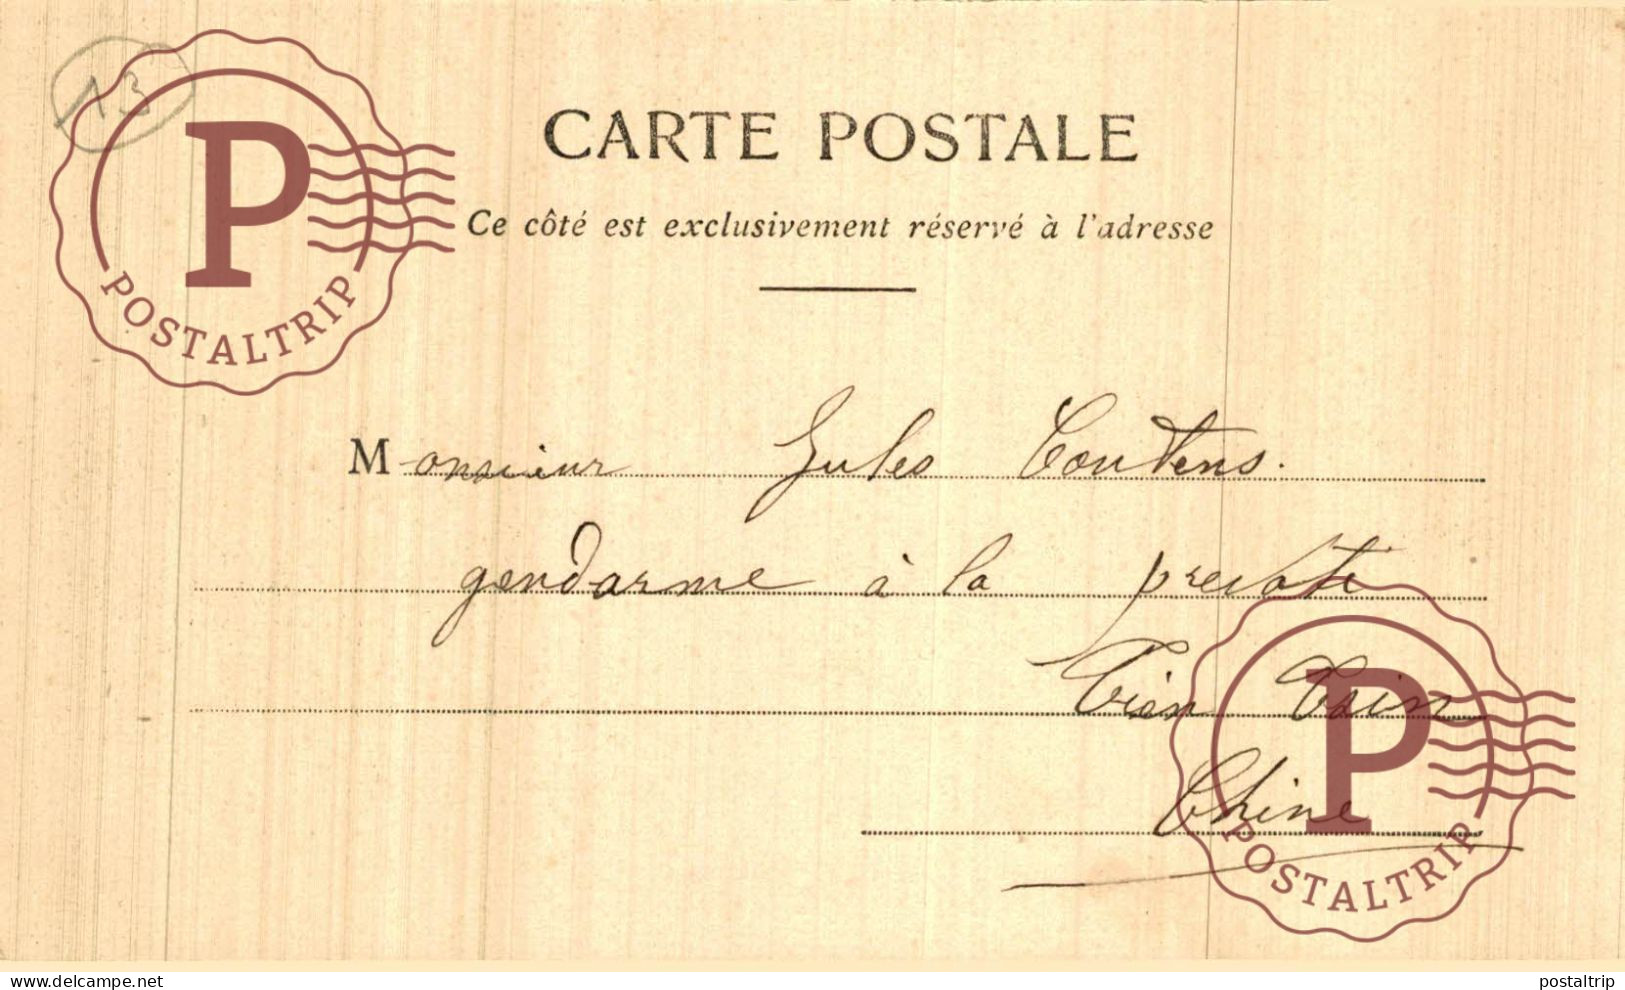 13
CARTE POSTALE
Ce côté est exclusivement réservé à l'adresse
Monsieur Jules Coutens.
gendarme à la prevote
Tien Tsin
Chine
P
POSTALTRIP
P
POSTALTRIP
delcampe.net
postaltrip